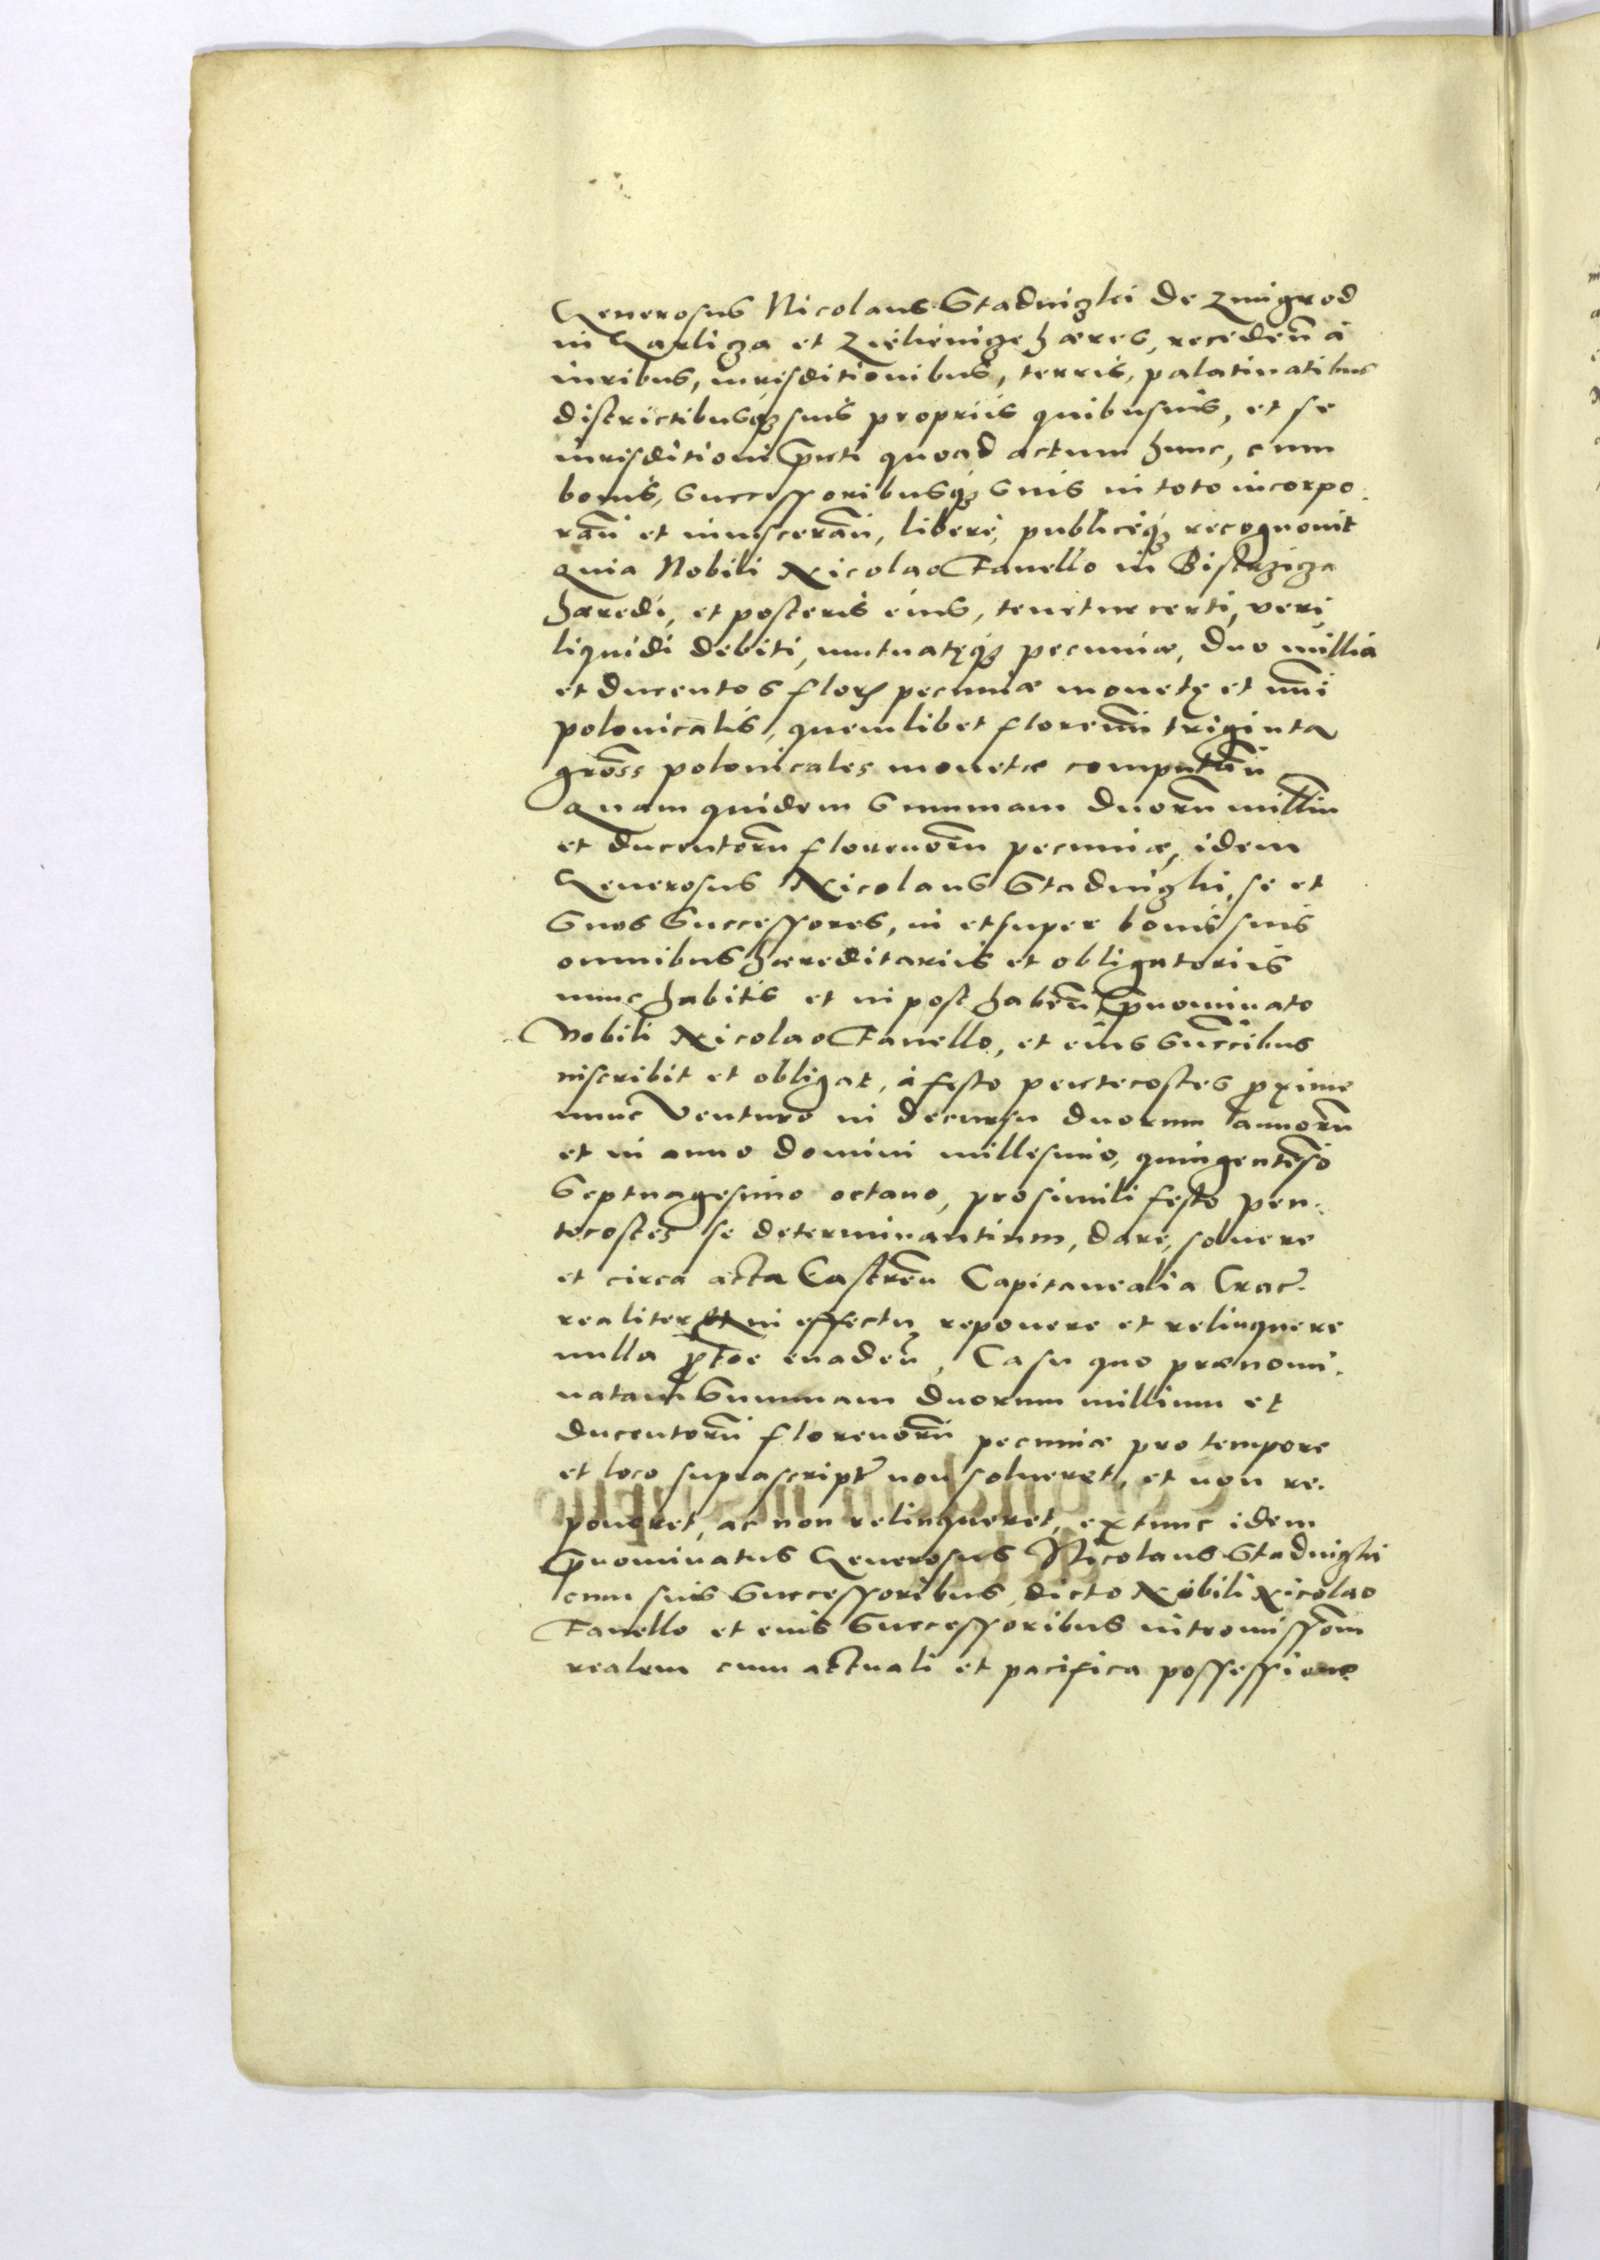 Generosus Nicolaus Stadniczki de Zmigrod
in Garlicza et Zielienicze hæres, recedeñ à
iuribus, iurisditionibus, terris, palatinatibus
districtibusq3 suis propriis quibusuis, et se
iurisditioni p̃nti quoad actum hunc, cum
bonis, Successoribusq3 Suis in toto incorpo.
rañ et inuiscerañ, liberè, publiceq3 recognouit
Quia Nobili Nicolao Fanello in
hæredi, et posteris eius, tenetur certi, veri,
liquidi debiti, mutuatęq3 pecuniæ, duo millia
et ducentos flor pecuniæ monetę et nũi
polonicalis, quemlibet florenũ triginta
gross polonicales monetæ computañ
Quam quidem Summam duorũ milliũ
et ducentorũ florenorũ pecuniæ, idem
Generosus Nicolaus Stadniczki, se et
Suos Successores, in et super bonis suis
omnibus hæreditariis et obligatoriis
nunc habitis et in post habeñ, p̃nominato
Nobili Nicolao Fanello, et eius Succibus
inscribit et obligat, à festo pentecostes p̱xime
nunc Venturo in decursu duorum annorũ
et in anno domini millesimo, quingentesõ
Septuagesimo octauo, pro simili festo pen.
tecostes se determinantium, dare, soluere
et circa acta Castreñ Capitanealia Crac̃.
realiter et in effectu reponere et relinquere
nulla p̱toe euadeñ, Casu quo prænomi.
natam Summam duorum millium et
ducentorũ florenorũ pecuniæ pro tempore
et loco suprascript̃ non solueret, et non re.
poneret, ac non relinqueret, extunc idem
p̃nominatus Generosus Nicolaus Stadniczki
cum suis Successoribus, dicto Nobili Nicolao
Fanello et eius Successoribus intromissõem
realem cum actuali et pacifica possessione